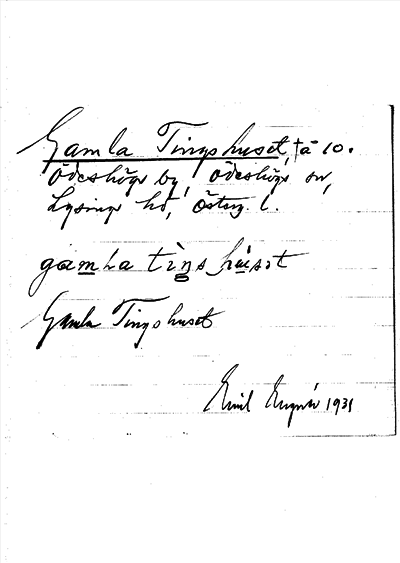 Gamla Tingshuset, tä 10.
Ödeshögs by, Ödeshögs sn,
Lysings hd, Österg. l.
gamla tiŋs hʉsət
Gamla Tingshuset
Emil 1931